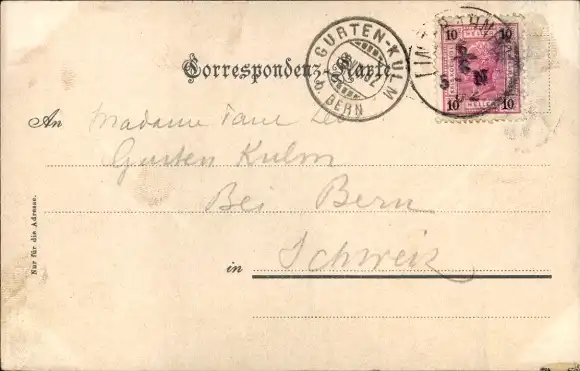 GURTEN-KULM
BERN
10 10
10 10
Correspondenz-Karte
An Madame
Gurten Kulm
Bei Bern
in Schweiz
Nur für die Adresse.